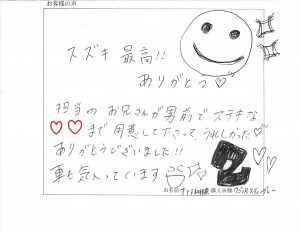 お客様の声
スズキ 最高!!
ありがとう♡
担当の お兄さんが男前で ステキな
♡♡まで 用意して下さって、うれしかった♡
ありがとうございました!!
車も気入っています
お名前
購入車種 ワゴンRスティングレー